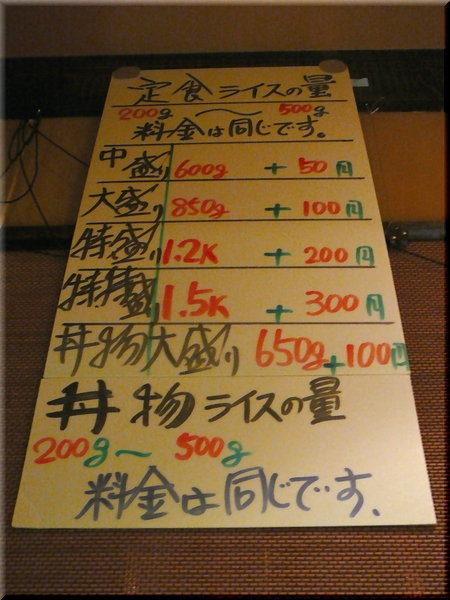 定食ライスの量
200g 〜 500g
料金は同じです。
中盛り 600g + 50円
大盛り 850g + 100円
特盛り 1.2K + 200円
特特盛り 1.5K + 300円
丼物大盛り 650g + 100円
丼物ライスの量
200g 〜 500g
料金は同じです、